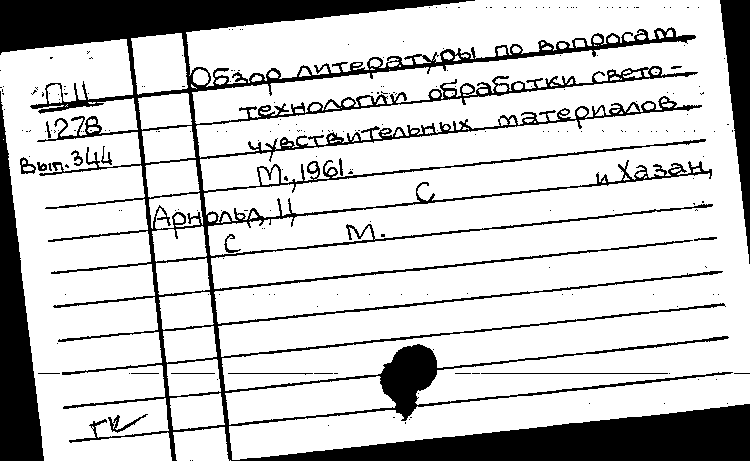 П 11
1278
Вып. 344
Обзор литературы по вопросам
технологии обработки свето-
чувствительных материалов.
М., 1961.
Арнольд, Ц С и Хазан,
С М.
ГК